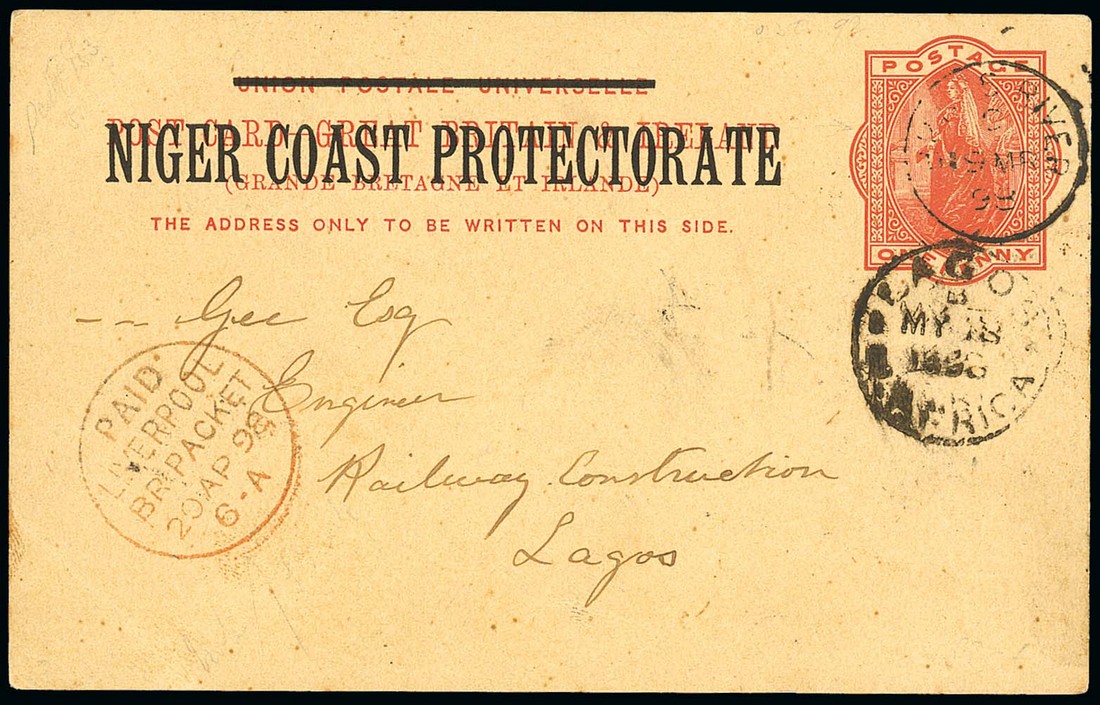 UNION POSTALE UNIVERSELLE
POST CARD - GREAT BRITAIN & IRELAND
NIGER COAST PROTECTORATE
(GRANDE BRETAGNE ET IRLANDE)
THE ADDRESS ONLY TO BE WRITTEN ON THIS SIDE.
POSTAGE
ONE PENNY
RIVER
98
-- Gee Esq
Engineer
Railway Construction
Lagos
PAID
LIVERPOOL
BR. PACKET
20 AP 98
6-A
LAGOS
MY 18
1898
AFRICA